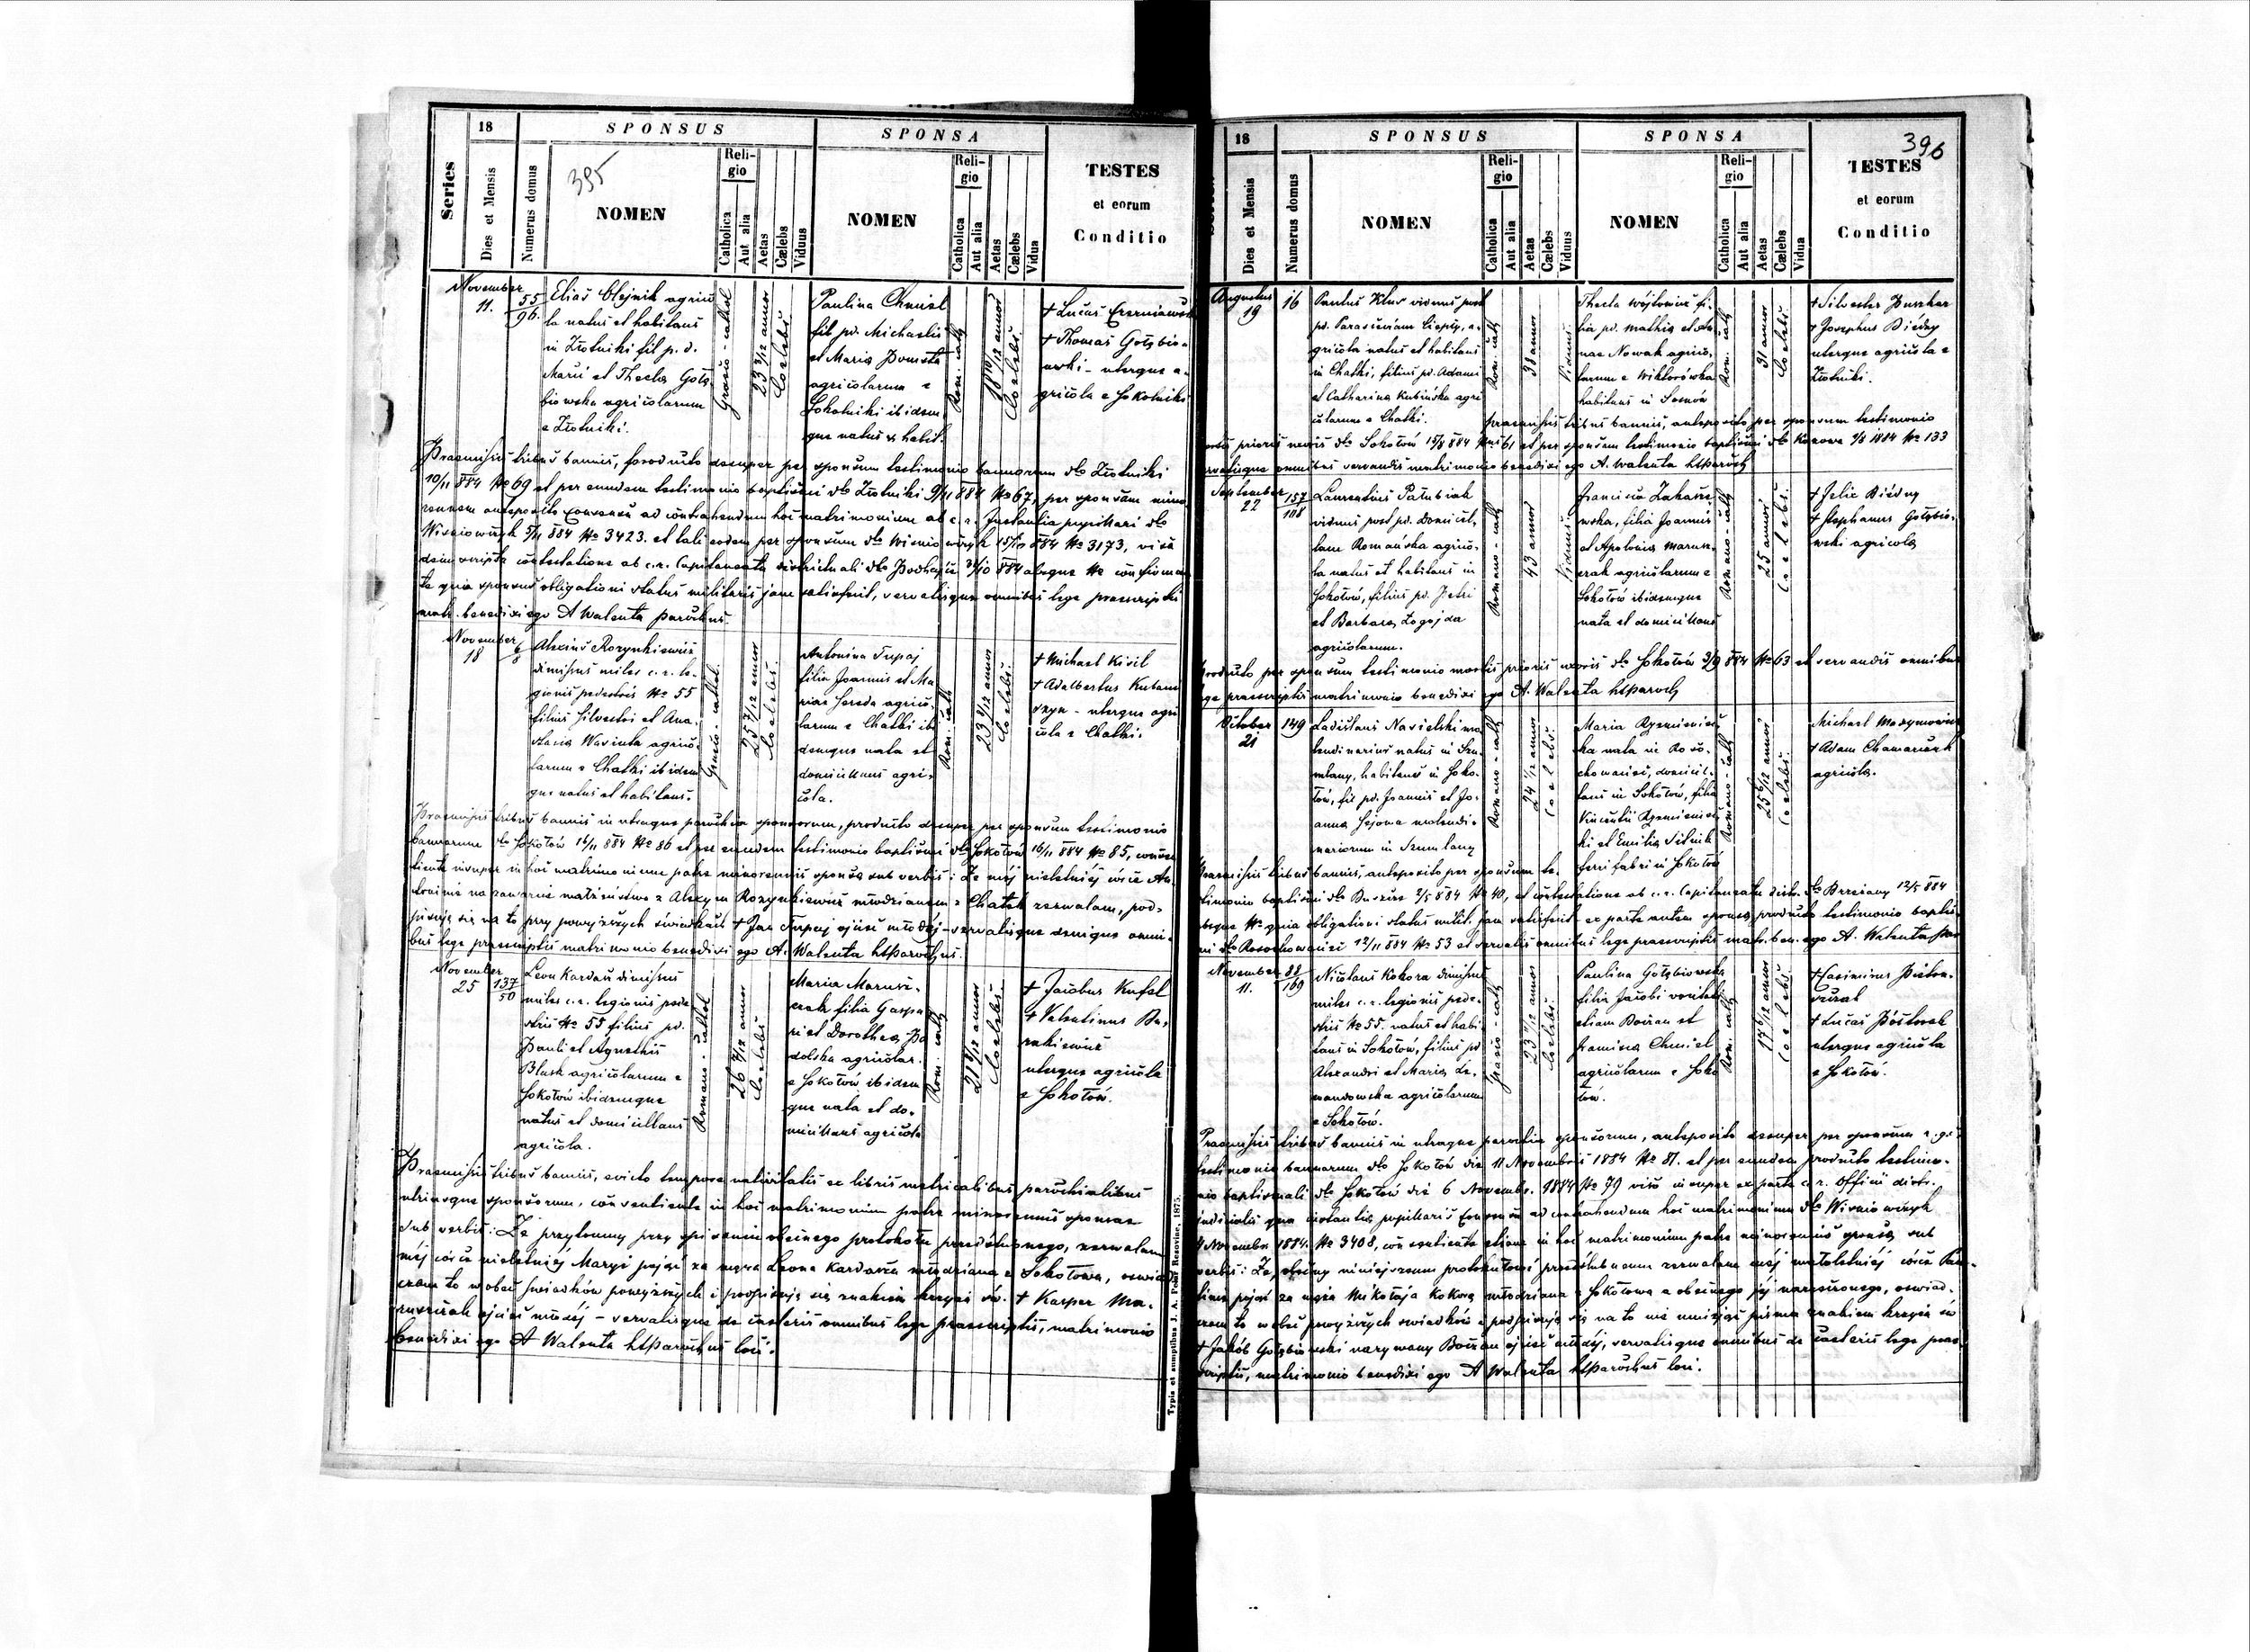 395
18
SPONSUS
SPONSA
TESTES
et eorum
Conditio
Series
Dies et Mensis
Numerus domus
NOMEN
Religio
Catholica
Aut alia
Aetas
Cælebs
Viduus
NOMEN
Religio
Catholica
Aut alia
Aetas
Cælebs
Vidua
November
11.
55
96.
Elias Olejnik agrico
la natus et habitans
in Złotniki fil p. d.
Marii et Thecla Gołę
biowska agricolarum
e Złotniki.
Graeco-cathol
Coelebs
Paulina Chmiel
fil pd. Michaelis
et Maria
agricolarum e
Sokolniki ibidem
que natus & habit.
Rom. cath
Coelebs
+ Lucas Czerniawski
+ Thomas Gołębio-
wski - uterque a-
gricola e Sokolniki
Praemissis tribus bannis, producto desuper per sponsum testimonio bannorum dto Złotniki
10/11 884 No 69 et per eundem testimonio baptismi dto Złotniki 9/11 884 No 67, per sponsam mino
rennem anteposito Consensu ad contrahendum hoc matrimonium ab c. r. Instantia pupillari dto
Wisniowczyk 5/11 884 No 3423. et tali eodem per sponsum dto Wisniowczyk 15/10 884 No 3173, visa
contestatione ab c. r. Capitaneatu districtuali dto Podhajce 31/10 884 absque No
te quia sponsus obligationi status militaris jam satisfecit, servatisque omnibus lege praescriptis
matr. benedixi ego A Walenta parochus.
November
18
6
8
Alexius Rozynkiewicz
dimissus miles c. r. le-
gionis pedestris No 55
filius Silvestri et Ana-
stasia Wasiuta agrico-
larum e Chatki ibidem
que natus et habitans.
Graeco-cathol.
25 7/12 annor
Coelebs
Antonina Tupaj
filia Joannis et Ma
riae Hereda agrico-
larum e Chatki ibi
demque nata et
domicilians agri-
cola.
Rom. cath
Coelebs
+ Michael Kisil
+ Adalbertus
- uterque agri
cola e Chatki.
Praemissis tribus bannis in utraque parochia sponsorum, producto desuper per sponsum testimonio
bannorum dto Sokołów 16/11 884 No 86 et per eundem testimonio baptismi dto Sokołów 16/11 884 No 85, consen
tiente insuper in hoc matrimonium patre minorennis sponsa sub verbis: Że mej nieletniej córce An
toninie na zawarcie małżeństwa z Alexym Rozynkiewicz młodzianem z Chatek zezwalam, pod-
pisuję się na to przy powyższych świadkach + Jan Tupaj ojciec młodej - servatisque denique omni-
bus lege praescriptis matrimonio benedixi ego A. Walenta ltsparochus.
November
25
137
50
Leon Kardasz dimissus
miles c. r. legionis pede
stris No 55 filius pd.
Pauli et Agnethis
Blask agricolarum e
Sokołów ibidemque
natus et domicilians
agricola.
Romano-cathol
Coelebs
Maria Marusz-
czak filia Gaspa
ri et Dorothea Po
dolska agricolar.
e Sokołów ibidem
que nata et do-
micilians agricola
Rom. cath
21 8/12 annor
Coelebs
+ Jacobus Kufel
+ Valentinus Bu-
rakiewicz
uterque agricola
e Sokołów.
Praemissis tribus bannis, evicto tempore nativitatis ex libris metricalibus parochialibus
utriusque sponsorum, consentiente in hoc matrimonium patre minorennis sponsae
sub verbis: Że przytomny przy spisaniu obecnego protokołu przedślubnego, zezwalam
mej córce nieletniej Maryi pojąć za męża Leona Kardasza młodziana z Sokołowa, oświad
czam to wobec świadków powyższych i podpisuję się znakiem krzyża św. + Kasper Ma-
ruszczak ojciec młodej - servatisque de caeteris omnibus lege praescriptis, matrimonio
benedixi ego A Walenta ltsparochus loci.
Typis et sumptibus J. A. Pelar Resoviae, 1875.
396
18
SPONSUS
SPONSA
TESTES
et eorum
Conditio
Dies et Mensis
Numerus domus
NOMEN
Religio
Catholica
Aut alia
Aetas
Cælebs
Viduus
NOMEN
Religio
Catholica
Aut alia
Aetas
Cælebs
Vidua
Augustus
19
16
Paulus Klus viduus post
pd. Parasceviam Cieply, a-
gricola natus et habitans
in Chatki, filius pd. Adami
et Catharina Kubińska agri
colarum e Chatki.
Rom. cath
38 annor
Viduus
Thecla Wójtowicz fi-
lia pd. Mathia et An
nae Nowak agrico-
larum e Wiktorówka
habitans in Sosnów
Rom. cath
31 annor
Coelebs
+ Silvester Puszkar
+ Josephus Biédny
uterque agricola e
Złotniki.
Praemissis tribus bannis, anteposito per sponsum testimonio
mortis prioris uxoris dto Sokołów 15/8 884 No 61 et per sponsam testimonio baptismi dto Kozowa 9/8 1884 No 133
servatisque omnibus servandis matrimonio benedixi ego A. Walenta ltsparoch
September
22
157
108
Laurentius Pałubiak
viduus post pd. Domicil-
lam Romańska agrico-
la natus et habitans in
Sokołów, filius pd. Petri
et Barbara Zogojda
agricolarum.
Romano-cath
43 annor
Viduus
Francisca Zakasze
wska, filia Joannis
et Apolonia Marusz-
czak agricolarum e
Sokołów ibidemque
nata et domicilians
Romano-cath
25 annor
Coelebs
+ Felix Biédny
+ Stephanus Gołębio-
wski agricola
Producto per sponsum testimonio mortis prioris uxoris dto Sokołów 3/9 884 No 63 et servandis omnibus
lege praescriptis matrimonio benedixi ego A. Walenta ltsparoch
October
21
149
Ladislaus Nasielski mo
lendinarius natus in Szu-
mlany, habitans in Soko-
łów, fil pd. Joannis et Jo-
anna Hejowa molendi-
nariorum in Szumlany
Romano-cath
Coelebs
Maria Rzemieniec
ka nata in Roso-
chowaciec, domicil-
lans in Sokołów, filia
Vincentii Rzemieniec
ki et Emilia Sitnik
ferri fabri in Sokołów
Romano-cath
Coelebs
Michael
+ Adam Chamarczuk
agricola.
Praemissis tribus bannis, anteposito per sponsum te-
stimonio baptismi dto Buszcze 2/5 884 No 40, et contestatione ab c. r. Capitaneatu distr. dto Brzeżany 12/5 884
absque No quia obligationi status milit. jam satisfecit - ex parte autem sponsa producto testimonio baptis-
mi dto Rosochowaciec 12/11 884 No 53 et servatis omnibus lege praescriptis matr. ben. ego A. Walenta par
November
11.
88
169
Nicolaus Kokora dimissus
miles c. r. legionis pede-
stris No 55. natus et habi
tans in Sokołów, filius pd
Alexandri et Maria Le-
wandowska agricolarum
e Sokołów.
Graeco-cath
Coelebs
Paulina Gołębiowska
filia Jacobi vocitati
etiam Boczan et
Francisca Chmiel
agricolarum e Soko
łów.
Rom. cath
Coelebs
+ Casimirus
+ Lucas
uterque agricola
e Sokołów.
Praemissis tribus bannis in utraque parochia sponsorum, anteposito desuper per sponsum r. g.
testimonio bannorum dto Sokołów die 11 Novembris 1884 No 87. et per eundem producto testimo-
nio baptismali dto Sokołów die 6 Novembr. 1884 No 79 viso insuper ex parte c. r. Officii distr.
judicialis qua instantia pupillaris Consensu ad contrahendum hoc matrimonium dto Wisniowczyk
Novembr 1884. No 3408, consentiente etiam in hoc matrimonium patre minorennis sponsa sub
verbis: Że, obecny niniejszemu protokułowi przedślubnemu zezwalam mej małoletniej córce Pau-
linie pojąć za męża Mikołaja Kokora młodziana z Sokołowa a obecnego jej narzeczonego, oswiad-
czam to wobec powyższych swiadków i podpisuję się na to nie umiejąc pisma znakiem krzyża św
+ Jakób Gołębiowski nazywany Boczan ojciec młodej, servatisque omnibus de caeteris lege prae-
scriptis, matrimonio benedixi ego A Walenta ltsparochus loci.